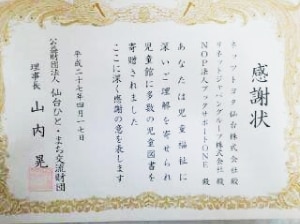 感謝状
ネッツトヨタ仙台株式会社 殿
リネットジャパングループ株式会社 殿
NOP法人ブックサポートONE 殿
あなたは児童福祉に
深いご理解を寄せられ
児童館に多数の児童図書を
寄贈されました
ここに深く感謝の意を表します
平成二十七年四月一七日
公益財団法人 仙台ひと・まち交流財団
理事長 山内 晃